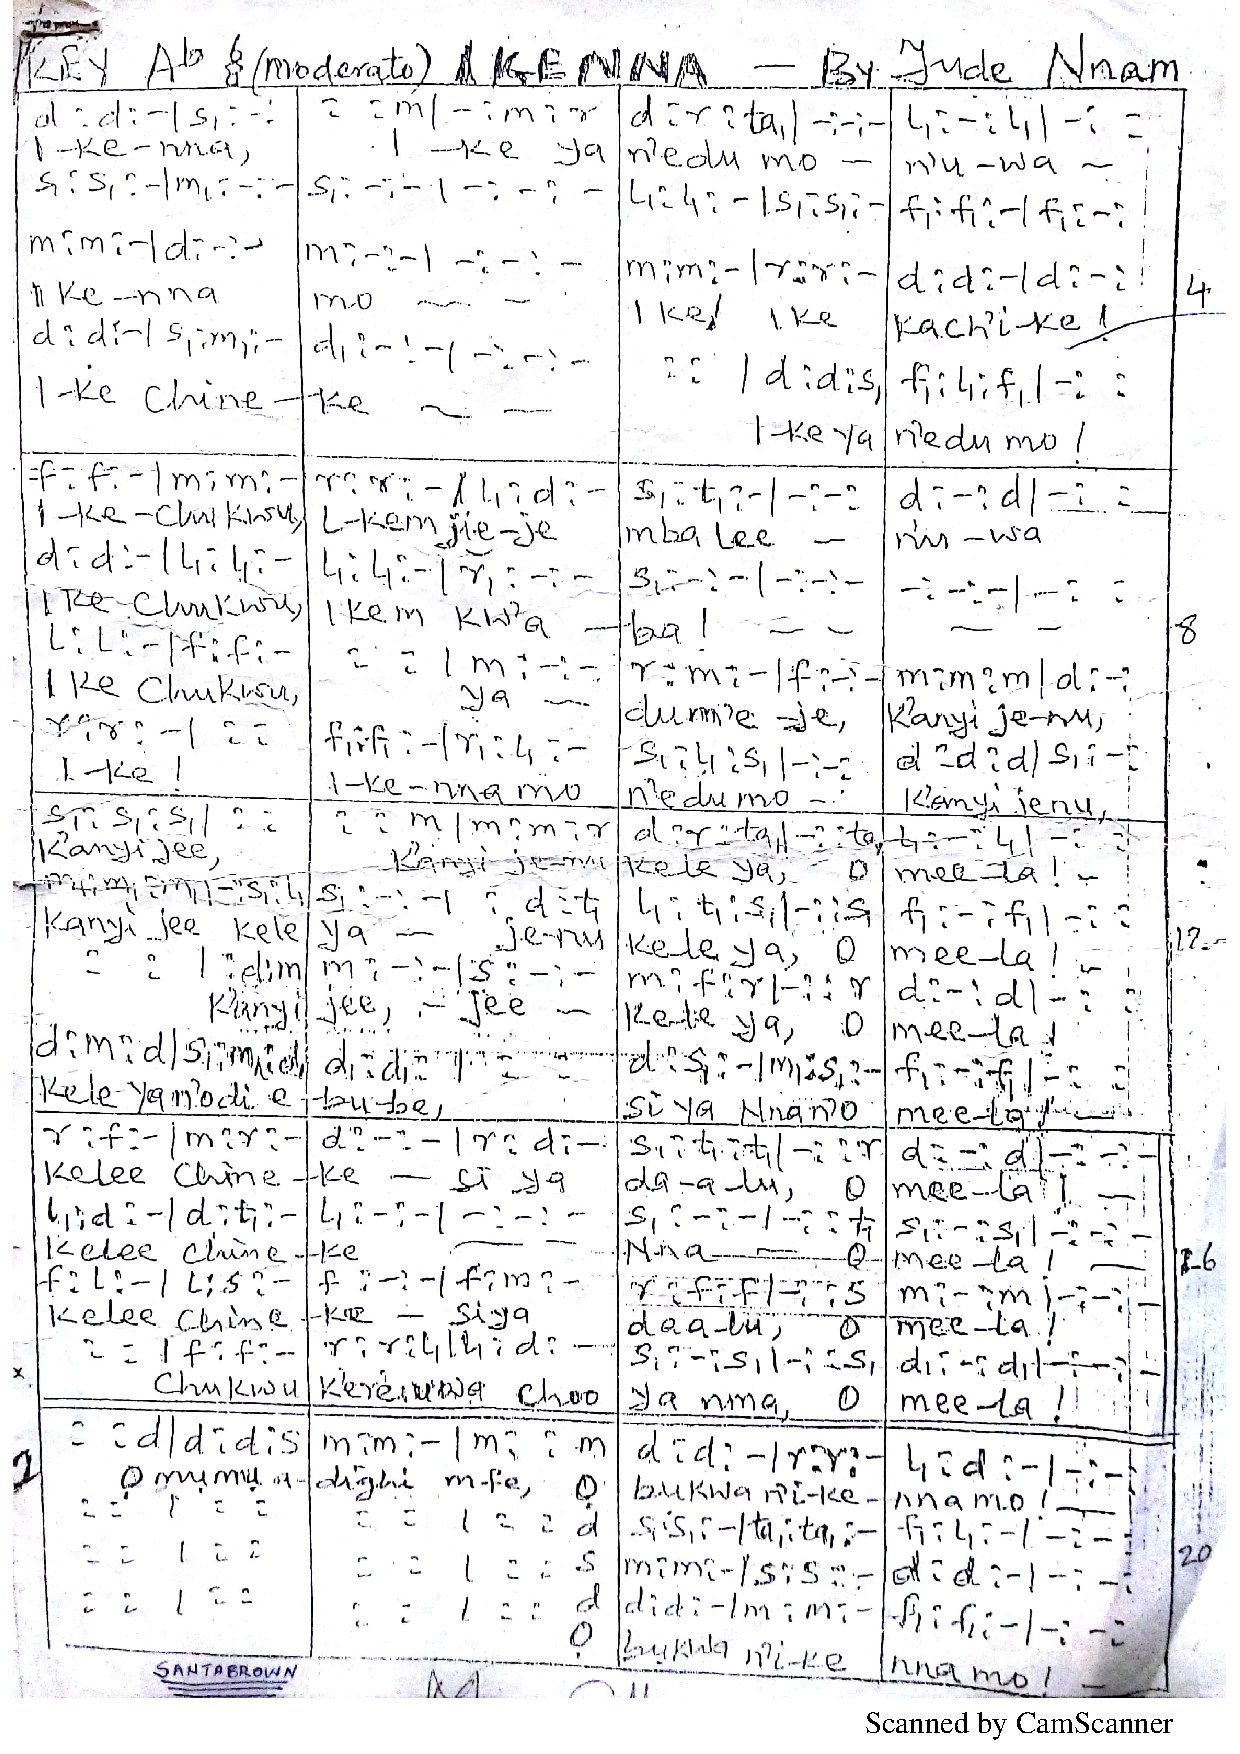 KEY Ab 6/8 (moderato) IKENNA — By Jude Nnam
d : d : - | s₁ : - : -   : : m | - : m : r   d : r : ta₁ | - : - : -   l₁ : - : l₁ | - : :
I-ke-nna,   I-ke ya   n'edu mo —   n'u-wa —
s₁ : s₁ : - | m₁ : - : -   s₁ : - : - | - : - : -   l₁ : l₁ : - | s₁ : s₁ : -   f₁ : f₁ : - | f₁ : - :
m : m : - | d : - : -   m : - : - | - : - : -   m : m : - | r : r : -   d : d : - | d : - :
Ike-nna   mo — —   Ike, Ike   Kachi-ke! 4
d : d : - | s₁ : m₁ : -   d₁ : - : - | - : - : -   : : | d : d : s₁   f₁ : l₁ : f₁ | - : :
I-ke Chine-   ke — —   I-ke ya   n'edu mo!
f : f : - | m : m : -   r : r : - | l₁ : d : -   s₁ : t₁ : - | - : - :   d : - : d | - : :
I-ke-Chukwu,   I-kem jie-je   mba Lee —   n'u-wa
d : d : - | l₁ : l₁ : -   l₁ : l₁ : - | r₁ : - : -   s₁ : - : - | - : - : -   - : - : - | - : :
Ike-Chukwu,   Ikem kw'a —   ba! — —   — — 8
l : l : - | f : f : -   : : | m : - : -   r : m : - | f : - : -   m : m : m | d : - :
Ike Chukwu,   ya —   dum'e-je,   K'anyi je-nu,
r : r : - | : :   f₁ : f₁ : - | r₁ : l₁ : -   s₁ : l₁ : s₁ | - : - :   d : d : d | s₁ : - :
I-ke!   I-ke-nna mo   n'edu mo —   K'anyi jenu,
s₁ : s₁ : s₁ | : :   : : m | m : m : r   d : r : ta₁ | - : : ta₁   l₁ : - : l₁ | - : :
K'anyi jee,   K'anyi je-nu   kele ya, O   mee-la! —
m₁ : m₁ : m₁ | - : s₁ : l₁   s₁ : - : - | : d : t₁   l₁ : t₁ : s₁ | - : : s₁   f₁ : - : f₁ | - : :
Kanyi jee kele   ya — je-nu   kele ya, O   mee-la! — 12
: : | : d : m   m : - : - | s : - : -   m : f : r | - : : r   d : - : d | - : :
K'anyi   jee, - jee —   Ke-le ya, O   mee-la!
d : m : d | s₁ : m₁ : d₁   d₁ : d₁ : | : :   d : s₁ : - | m₁ : s₁ : -   f₁ : - : f₁ | - : :
Kele ya n'odi e-   bu-be,   si ya Nna no   mee-la! —
r : f : - | m : r : -   d : - : - | r : d : -   s₁ : t₁ : t₁ | - : : r   d : - : d | - : - : -
Kelee Chine-   ke — si ya   da-a-lu, O   mee-la! —
l₁ : d : - | d : t₁ : -   l₁ : - : - | - : - : -   s₁ : - : - | - : : t₁   s₁ : - : s₁ | - : - : -
Kelee Chine-   ke —   Nna — O   mee-la! — 16
f : l : - | l : s : -   f : - : - | f : m : -   r : f : f | - : : s   m : - : m | - : - : -
Kelee Chine-   ke — si ya   daa-lu, O   mee-la!
: : | f : f : -   r : r : l₁ | l₁ : d : -   s₁ : - : s₁ | - : : s₁   d₁ : - : d₁ | - : - : -
Chukwu   choo   ya nma, O   mee-la!
1   : : d | d : d : s   m : m : - | m : : m   d : d : - | r : r : -   l₁ : d : - | - : - :
O   dighi m-fe, O   bukwa n'i-ke-   nna mo! —
: : | : :   : : | : : d   s₁ : s₁ : - | ta₁ : ta₁ : -   f₁ : l₁ : - | - : - :
: : | : :   : : | : : s   m : m : - | s : s : -   d : d : - | - : - : 20
: : | : :   : : | : : d   d : d : - | m : m : -   f₁ : f₁ : - | - : - :
O   bukwa n'i-ke   nna mo! —
SANTABROWN
Scanned by CamScanner